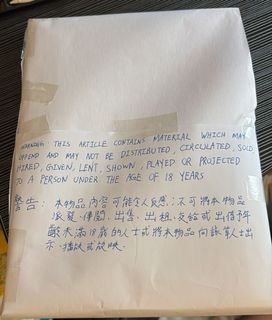 WARNING: THIS ARTICLE CONTAINS MATERIAL WHICH MAY
OFFEND AND MAY NOT BE DISTRIBUTED, CIRCULATED, SOLD
HIRED, GIVEN, LENT, SHOWN, PLAYED OR PROJECTED
TO A PERSON UNDER THE AGE OF 18 YEARS
警告: 本物品內容可能令人反感; 不可將本物品
派發、傳閱、出售、出租、交給或出借予年
齡未滿18歲的人士或將本物品向該等人士出
示、播放或放映。